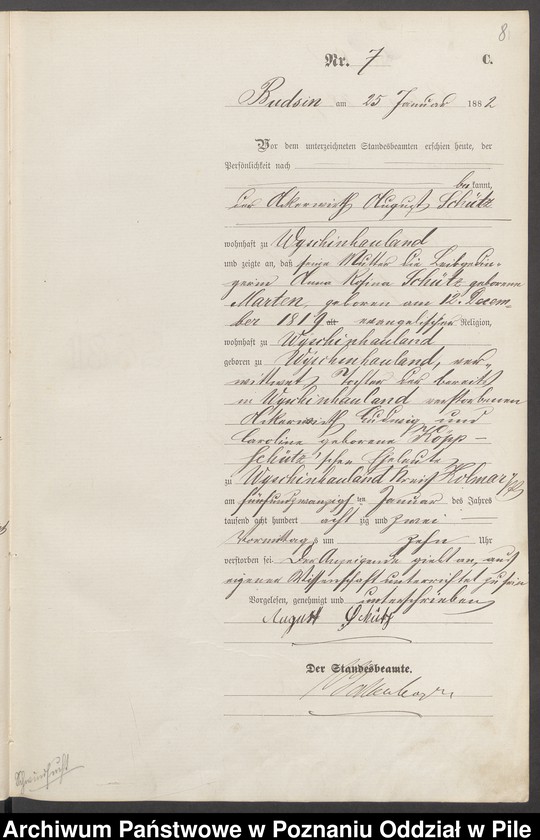 8
Nr. 7 C.
Budsin am 25 Januar 1882
Vor dem unterzeichneten Standesbeamten erschien heute, der
Persönlichkeit nach
bekannt,
der Ackerwirth August Schütz
wohnhaft zu Wyschinhauland
und zeigte an, daß seine Mutter die Leibgedin-
gerin Anna Rosina Schütz geborene
Marten, geboren am 12. Decem-
ber 1819 alt evangelischer Religion,
wohnhaft zu Wyschinhauland
geboren zu Wyschinhauland, ver-
wittwet, Tochter der bereits
in Wyschinhauland verstorbenen
Ackerwirth Ludwig und
Caroline geborene Köpp -
Schütz'schen Eheleute
zu Wyschinhauland Kreis Kolmar
am fünfundzwanzigsten Januar des Jahres
tausend acht hundert achtzig und zwei
Vormittags um zehn Uhr
verstorben sei. Der Anzeigende giebt an, aus
eigener Wissenschaft unterrichtet zu sein
Vorgelesen, genehmigt und unterschrieben
August Schütz
Der Standesbeamte.
Schwindsucht
Archiwum Państwowe w Poznaniu Oddział w Pile